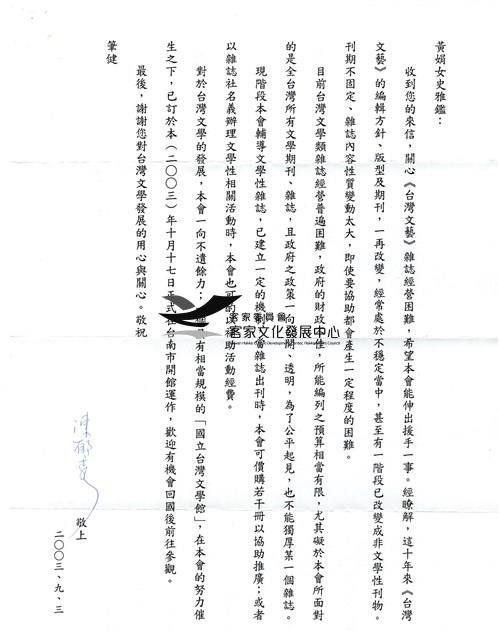 黃娟女史雅鑑：
收到您的來信，關心《台灣文藝》雜誌經營困難，希望本會能伸出援手一事。經瞭解，這十年來《台灣
文藝》的編輯方針、版型及期刊，一再改變，經常處於不穩定當中，甚至有一階段已改變成非文學性刊物。
刊期不固定、雜誌內容性質變動太大，即使要協助都會產生一定程度的困難。
目前台灣文學類雜誌經營普遍困難，政府的財政不佳，所能編列之預算相當有限，尤其礙於本會所面對
的是全台灣所有文學期刊、雜誌，且政府之政策一向公開、透明，為了公平起見，也不能獨厚某一個雜誌。
現階段本會輔導文學性雜誌，已建立一定的機制，當雜誌出刊時，本會可價購若干冊以協助推廣；或者
以雜誌社名義辦理文學性相關活動時，本會也可酌以補助活動經費。
對於台灣文學的發展，本會一向不遺餘力；有相當規模的「國立台灣文學館」，在本會的努力催
生之下，已訂於本（二００三）年十月十七日正式在台南市開館運作，歡迎有機會回國後前往參觀。
最後，謝謝您對台灣文學發展的用心與關心。敬祝
筆健
陳郁秀
敬上
二００三、九、三
客家委員會
客家文化發展中心